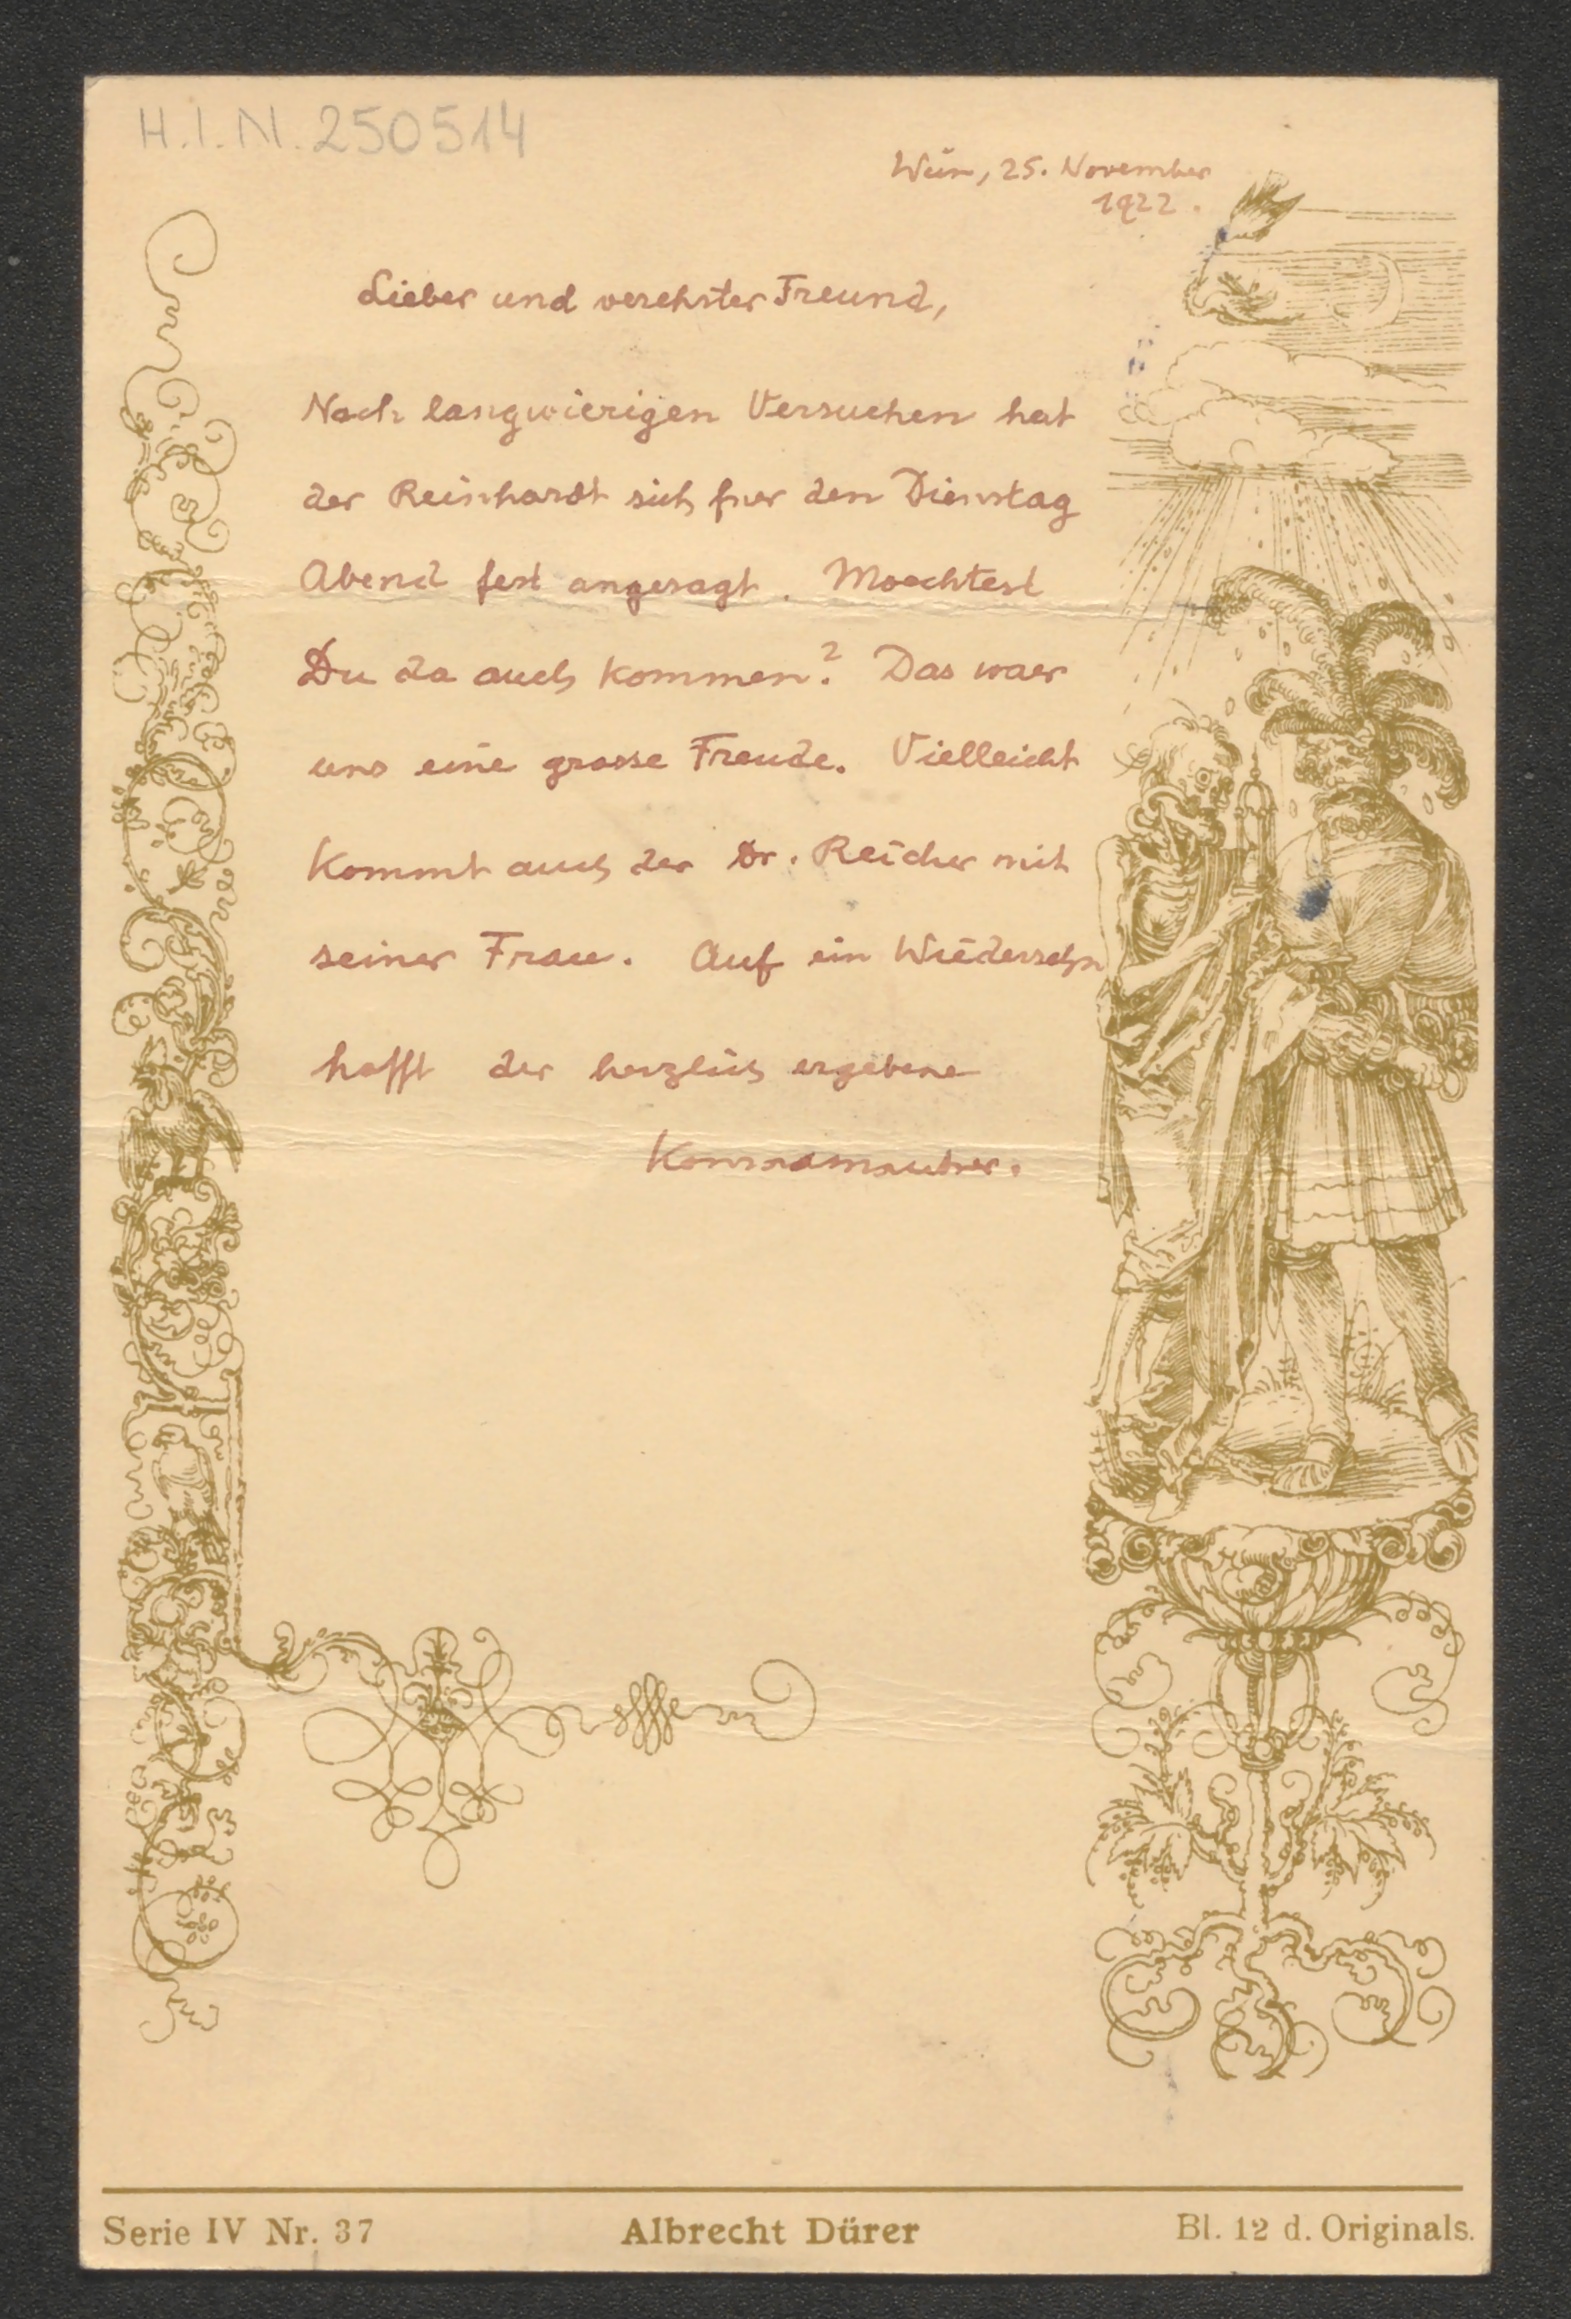 H.I.N. 250514
Wien, 25. November
1922.
Lieber und verehrter Freund,
Nach langwierigen Versuchen hat
der Reinhardt sich fuer den Dienstag
Abend fest angesagt. Moechtest
Du da auch kommen? Das waer
uns eine grosse Freude. Vielleicht
kommt auch der Dr. Reicher mit
seiner Frau. Auf ein Wiedersehn
hofft der herzlich ergebene
Serie IV Nr. 37 Albrecht Dürer Bl. 12 d. Originals.